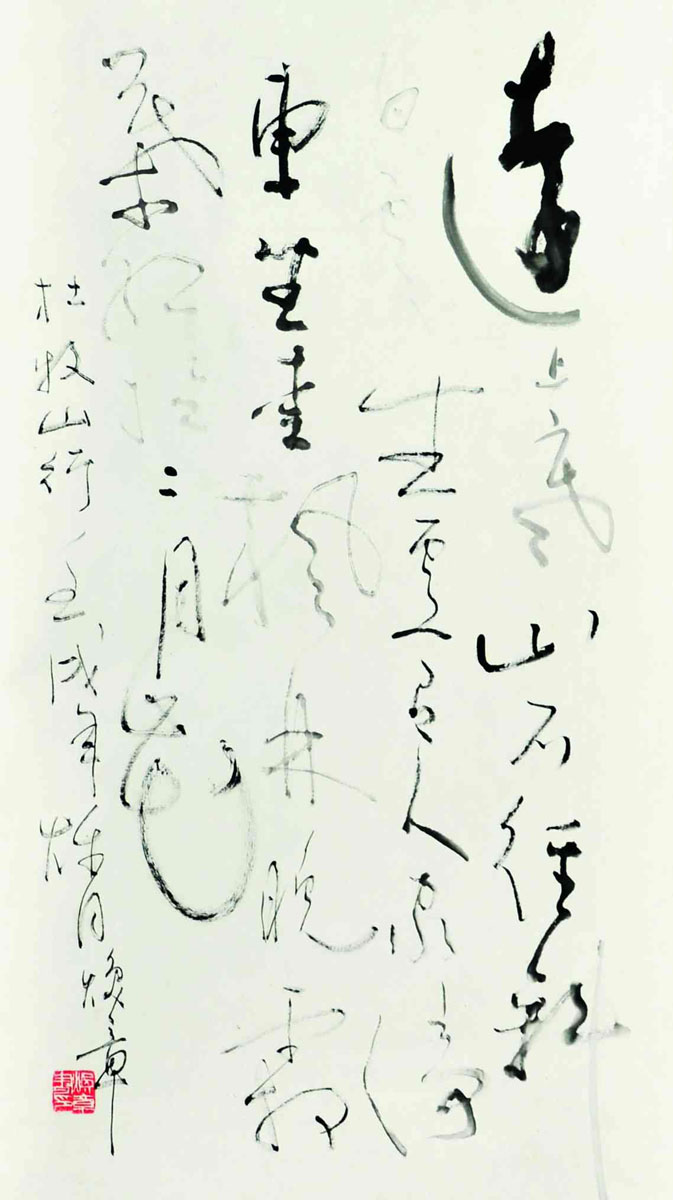 遠上寒山石徑斜
白雲生處有人家停
車坐愛楓林晚霜
葉紅於二月花
杜牧山行 壬戌年秋月煥章